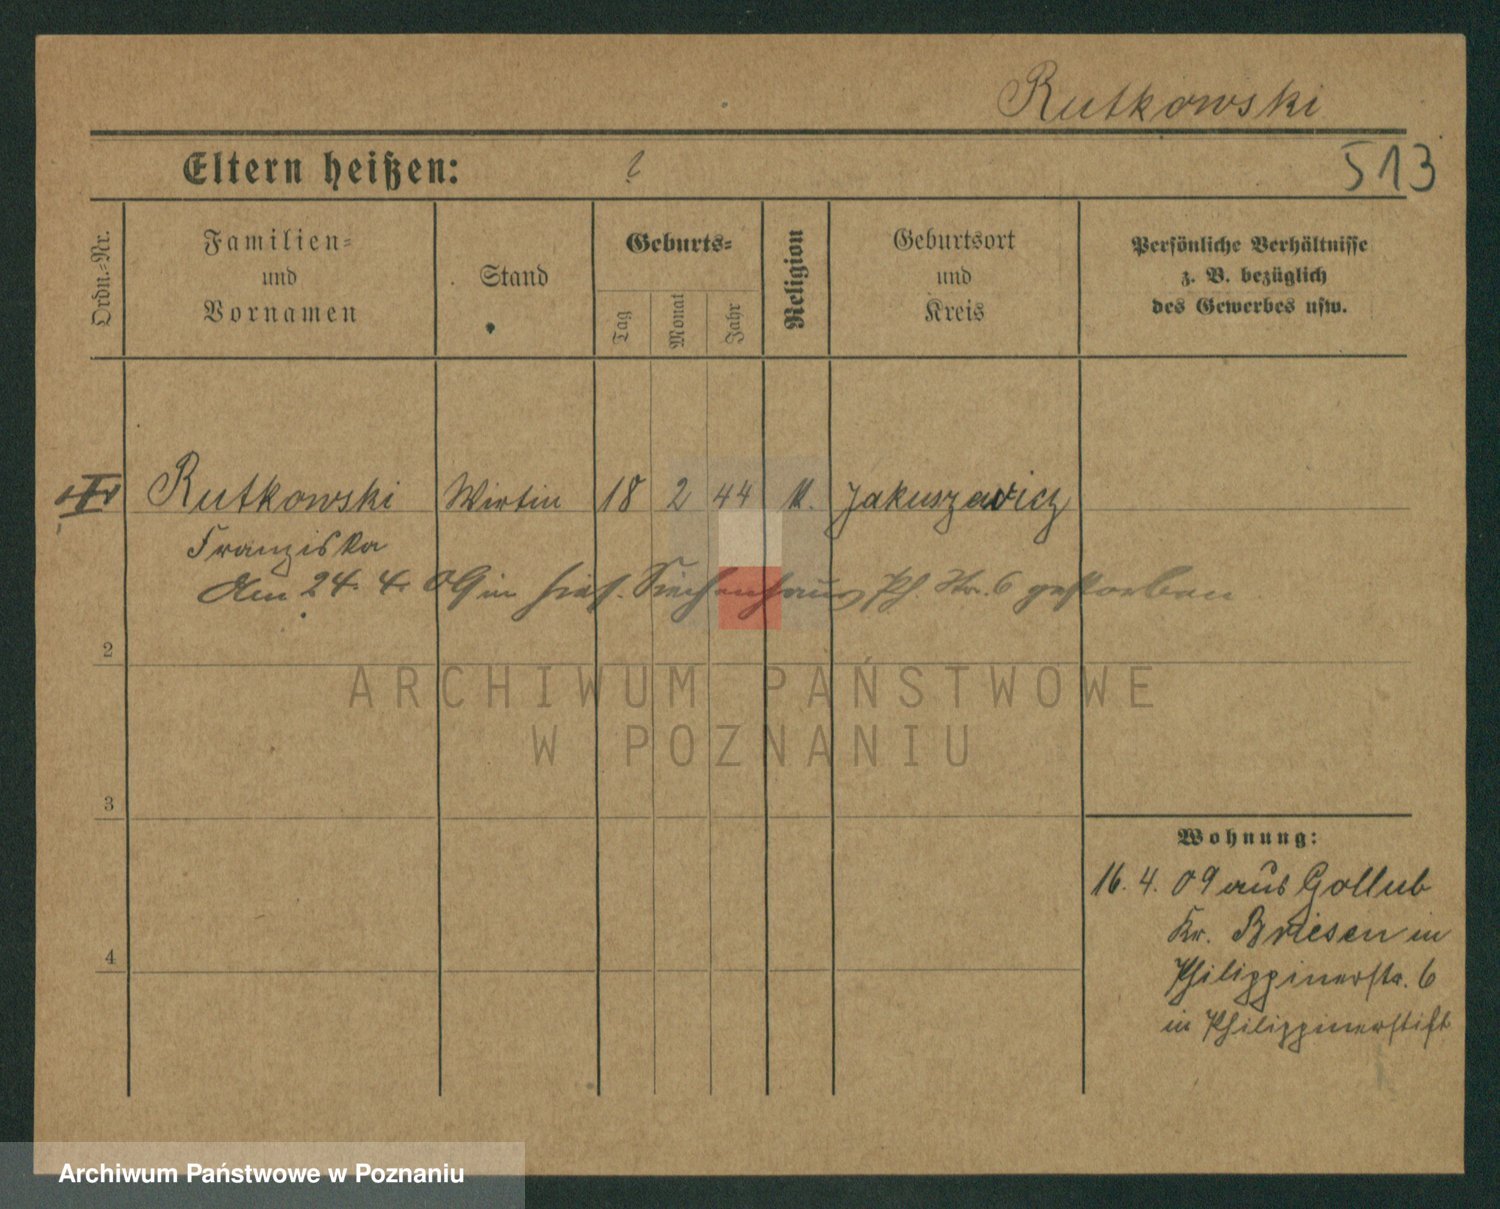 Rutkowski
513
Eltern heißen: ?
Ordn.-Nr.
Familien-
und
Vornamen
Stand
Geburts-
Tag
Monat
Jahr
Religion
Geburtsort
und
Kreis
Persönliche Verhältnisse
z. B. bezüglich
des Gewerbes usw.
Rutkowski Wirtin 18 2 44 k. Jakuszewicz
Franziska
Am 24. 4. 09 in hies. Siechenhaus Ph. Str. 6 gestorben
2
ARCHIWUM PAŃSTWOWE
W POZNANIU
3
4
Wohnung:
16. 4. 09 aus Gollub
Kr. Briesen in
Philippinerstr. 6
in Philippinerstift
Archiwum Państwowe w Poznaniu